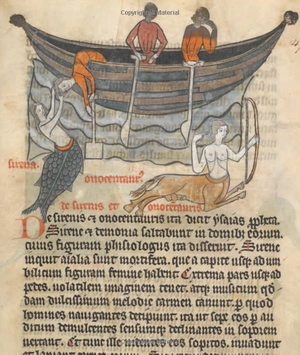 sirena.
onocentaur᷒
de sirenis et onocentauris.
De sirenis ⁊ onocentauris ita dicit ysaias ꝓpheta.
Sirene ⁊ demonia saltabunt in domibꝫ eorum
quius figuram phisiologus ita disseruit. Sirene
inquit aīalia sunt mortifera. que a capite usqꝫ ad um
bilicum figuram femine habent. Extrema pars usqꝫ ad
pedes. uolatilem imaginem tenet. atqꝫ musicum qͦd
dam dulcissimum melodie carmen canunt. ꝑ quod
homines nauigantes decipiunt.
ditum demulcentes sensumqꝫ delinantes in soporem
uertunt. Et tunc ille